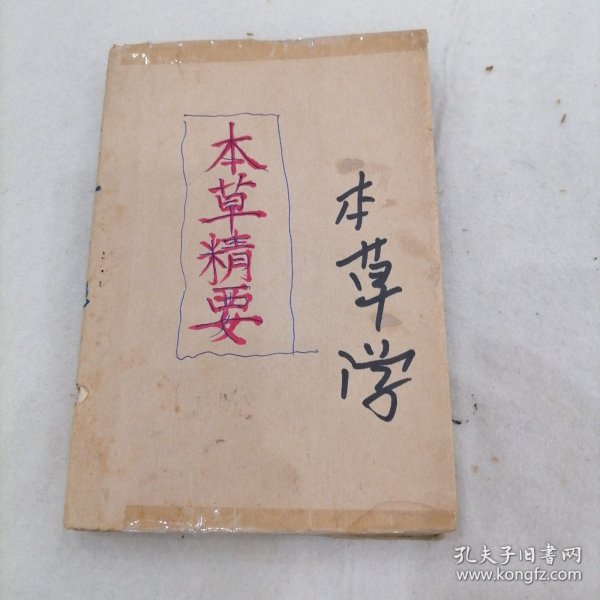 本草学
本草精要
孔夫子旧书网
www.kongfz.com